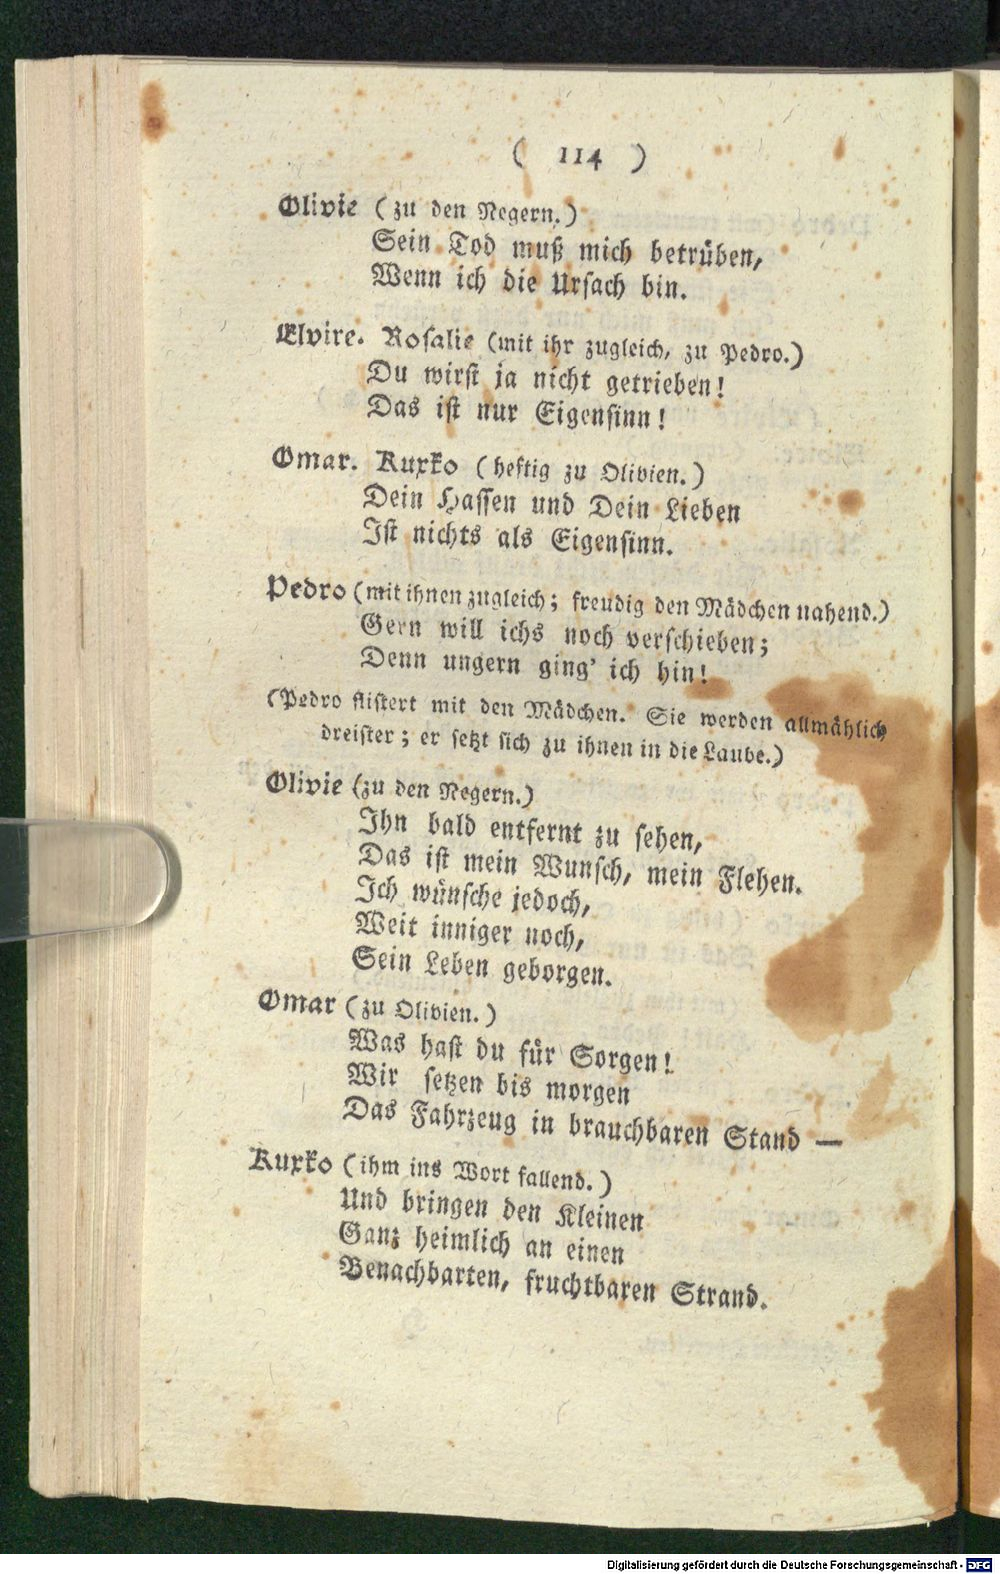 ( 114 )
Olivie (zu den Negern.)
Sein Tod muß mich betrüben,
Wenn ich die Ursach bin.
Elvire. Rosalie (mit ihr zugleich, zu Pedro.)
Du wirst ja nicht getrieben!
Das ist nur Eigensinn!
Omar. Kuxko (heftig zu Olivien.)
Dein Hassen und Dein Lieben
Ist nichts als Eigensinn.
Pedro (mit ihnen zugleich; freudig den Mädchen nahend.)
Gern will ichs noch verschieben;
Denn ungern ging' ich hin!
(Pedro flistert mit den Mädchen. Sie werden allmählich
dreister; er setzt sich zu ihnen in die Laube.)
Olivie (zu den Negern.)
Ihn bald entfernt zu sehen,
Das ist mein Wunsch, mein Flehen.
Ich wünsche jedoch,
Weit inniger noch,
Sein Leben geborgen.
Omar (zu Olivien.)
Was hast du für Sorgen!
Wir setzen bis morgen
Das Fahrzeug in brauchbaren Stand —
Kuxko (ihm ins Wort fallend.)
Und bringen den Kleinen
Ganz heimlich an einen
Benachbarten, fruchtbaren Strand.
Digitalisierung gefördert durch die Deutsche Forschungsgemeinschaft - DFG